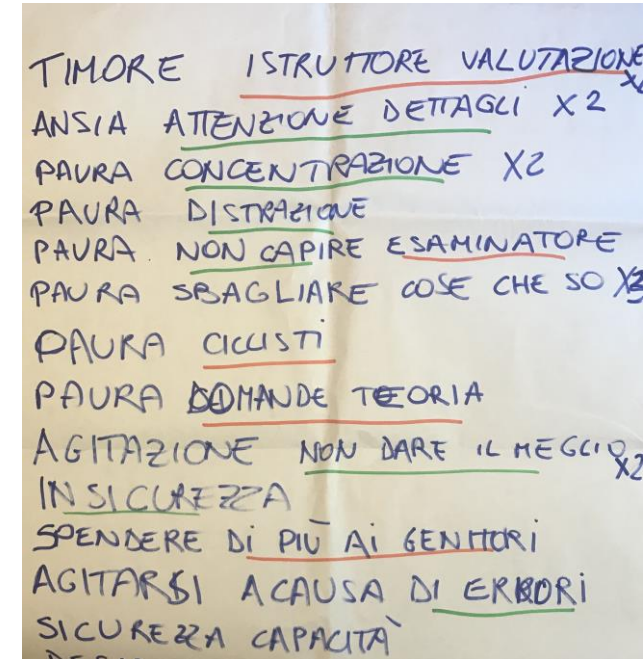 TIMORE ISTRUTTORE VALUTAZIONE
ANSIA ATTENZIONE DETTAGLI X2
PAURA CONCENTRAZIONE X2
PAURA DISTRAZIONE
PAURA NON CAPIRE ESAMINATORE
PAURA SBAGLIARE COSE CHE SO X3
PAURA CICLISTI
PAURA DOMANDE TEORIA
AGITAZIONE NON DARE IL MEGLIO X2
INSICUREZZA
SPENDERE DI PIÙ AI GENITORI
AGITARSI A CAUSA DI ERRORI
SICUREZZA CAPACITÀ